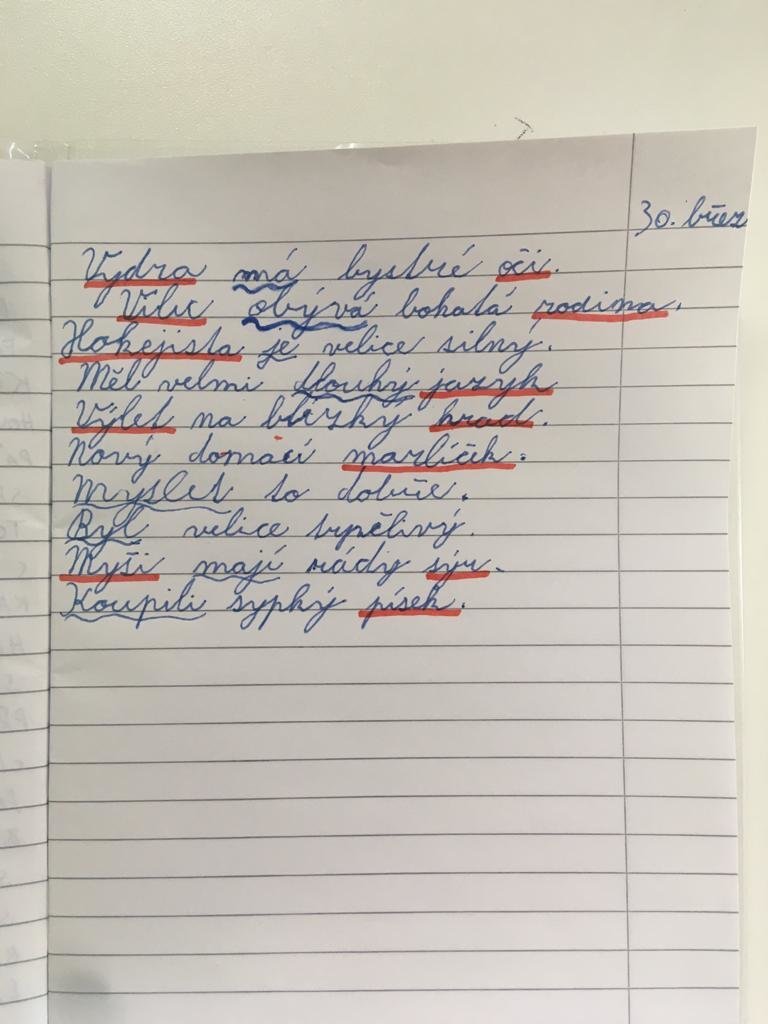 30. břez
Vydra má bystré oči.
Vilu obývá bohatá rodina.
Hokejista je velice silný.
Měl velmi dlouhý jazyk
Výlet na blízký hrad.
Nový domácí mazlíček.
Myslel to dobře.
Byl velice trpělivý.
Myši mají rády sýr.
Koupili sypký písek.